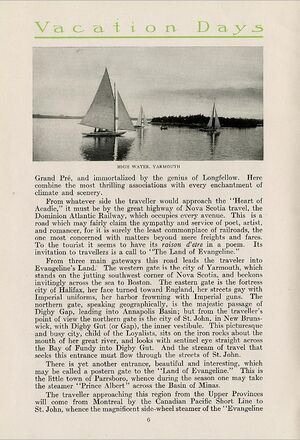 Vacation Days
HIGH WATER, YARMOUTH
Grand Pré, and immortalized by the genius of Longfellow. Here
combine the most thrilling associations with every enchantment of
climate and scenery.
From whatever side the traveller would approach the "Heart of
Acadie," it must be by the great highway of Nova Scotia travel, the
Dominion Atlantic Railway, which occupies every avenue. This is a
road which may fairly claim the sympathy and service of poet, artist,
and romancer, for it is surely the least commonplace of railroads, the
one most concerned with matters beyond mere freights and fares.
To the tourist it seems to have its raison d'etre in a poem. Its
invitation to travellers is a call to "The Land of Evangeline."
From three main gateways this road leads the traveler into
Evangeline's Land. The western gate is the city of Yarmouth, which
stands on the jutting southwest corner of Nova Scotia, and beckons
invitingly across the sea to Boston. The eastern gate is the fortress
city of Halifax, her face turned toward England, her streets gay with
Imperial uniforms, her harbor frowning with Imperial guns. The
northern gate, speaking geographically, is the majestic passage of
Digby Gap, leading into Annapolis Basin; but from the traveller's
point of view the northern gate is the city of St. John, in New Bruns-
wick, with Digby Gut (or Gap), the inner vestibule. This picturesque
and busy city, child of the Loyalists, sits on the iron rocks about the
mouth of her great river, and looks with sentinel eye straight across
the Bay of Fundy into Digby Gut. And the stream of travel that
seeks this entrance must flow through the streets of St. John.
There is yet another entrance, beautiful and interesting, which
may be called a postern gate to the "Land of Evangeline." This is
the little town of Parrsboro, whence during the season one may take
the steamer "Prince Albert" across the Basin of Minas.
The traveller approaching this region from the Upper Provinces
will come from Montreal by the Canadian Pacific Short Line to
St. John, whence the magnificent side-wheel steamer of the "Evangeline
6